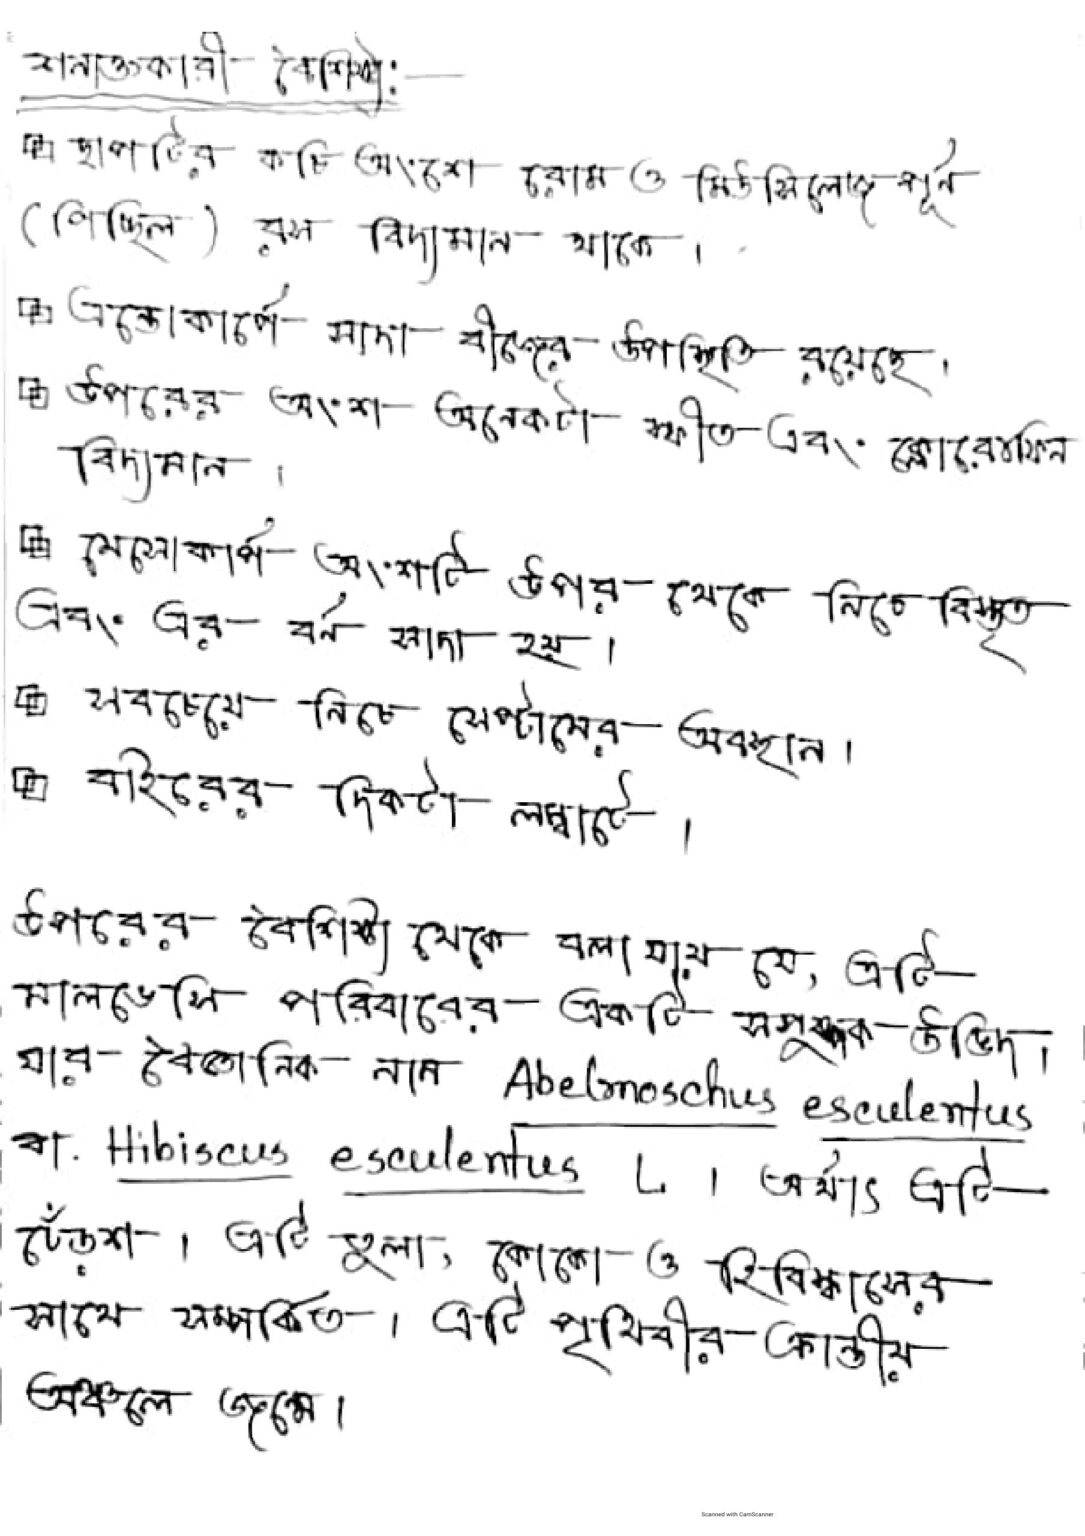 শনাক্তকারী বৈশিষ্ট্য:—
ছাপটির কচি অংশে রোম ও মিউসিলেজ পূর্ন
(পিচ্ছিল) রস বিদ্যমান থাকে।
এন্ডোকার্পে সাদা বীজের উপস্থিতি রয়েছে।
উপরের অংশ অনেকটা স্ফীত এবং ক্লোরোফিল
বিদ্যমান।
মেসোকার্প অংশটি উপর থেকে নিচে বিস্তৃত
এবং এর বর্ন সাদা হয়।
সবচেয়ে নিচে সেপ্টামের অবস্থান।
বাইরের দিকটা লম্বাটে।
উপরের বৈশিষ্ট্য থেকে বলা যায় যে, এটি
মালভেসি পরিবারের একটি সপুষ্পক উদ্ভিদ।
যার বৈজ্ঞানিক নাম Abelmoschus esculentus
বা. Hibiscus esculentus L। অর্থাৎ এটি
ঢেঁড়শ। এটি তুলা, কোকো ও হিবিস্কাসের
সাথে সম্পর্কিত। এটি পৃথিবীর ক্রান্তীয়
অঞ্চলে জন্মে।
Scanned with CamScanner